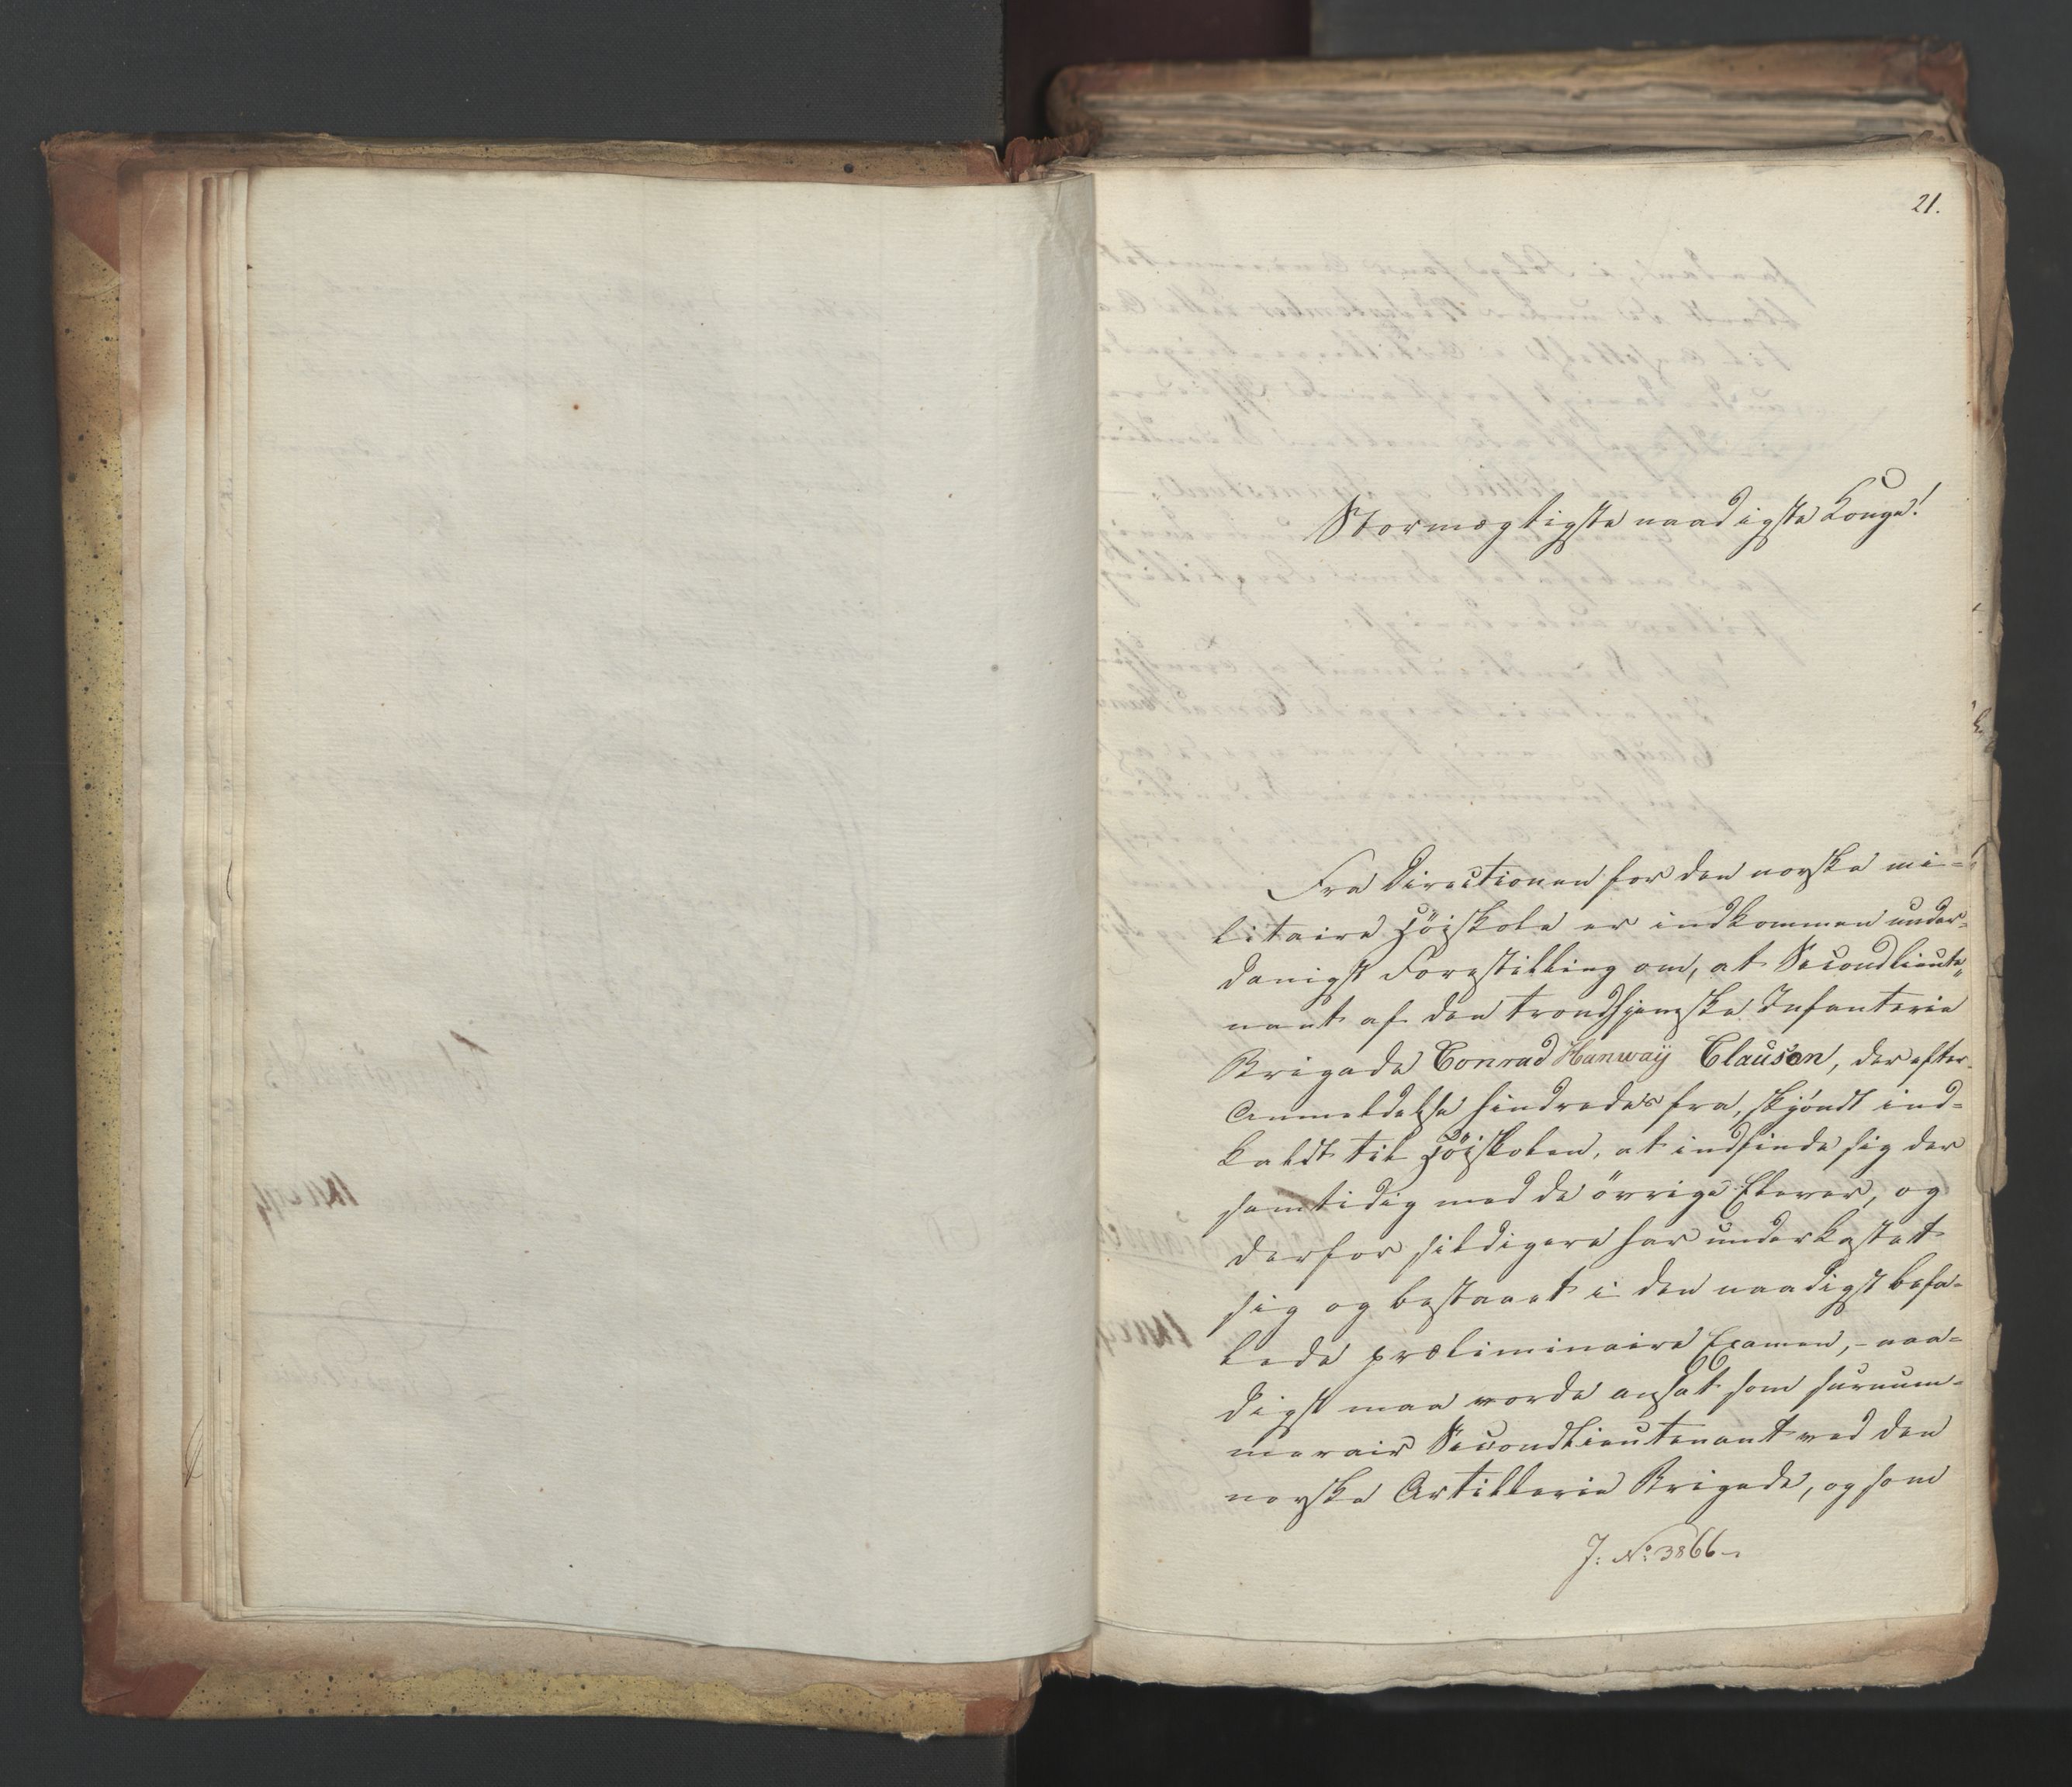 21.
Stormægtigste naadigste Konge!
Fra Directionen for den norske mi-
litaire Höiskole er indkommen under-
danigst Forestilling om, at Secondlieute-
nant af den trondhjemske Infanterie
Brigade Conrad Hanway Clauson, der efter
Anmeldelse hindredes fra, skjöndt ind-
kaldt til Höiskolen, at indfinde sig der
samtidig med de övrige Elever, og
derfor sildigere har underkastet
sig og bestaaet i den naadigst befa-
lede præliminaire Examen, - naa-
digst maa vorde ansat som surnum-
merair Secondlieutenant ved den
norske Artillerie Brigade, og som
J: No: 3866